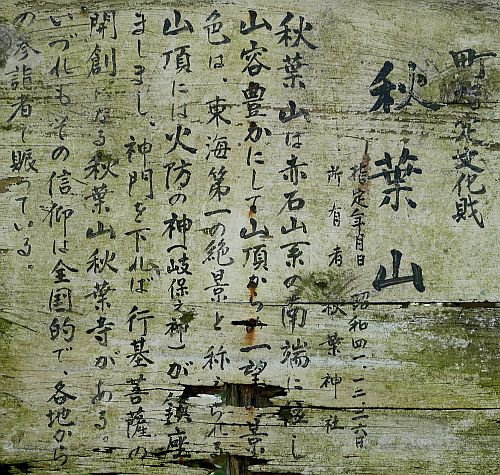 町指定文化財
秋葉山
指定年月日 昭和四一、一二、二六日
所有者 秋葉神社
秋葉山は赤石山系の南端に位し
山容豊かにして山頂からの一望の景
色は、東海第一の絶景と称せられる
山頂には火防の神(岐保之神)が鎮座
ましまし、神門を下れば行基菩薩の
開創になる秋葉山秋葉寺がある。
いづれもその信仰は全国的で、各地から
の参詣者で賑っている。